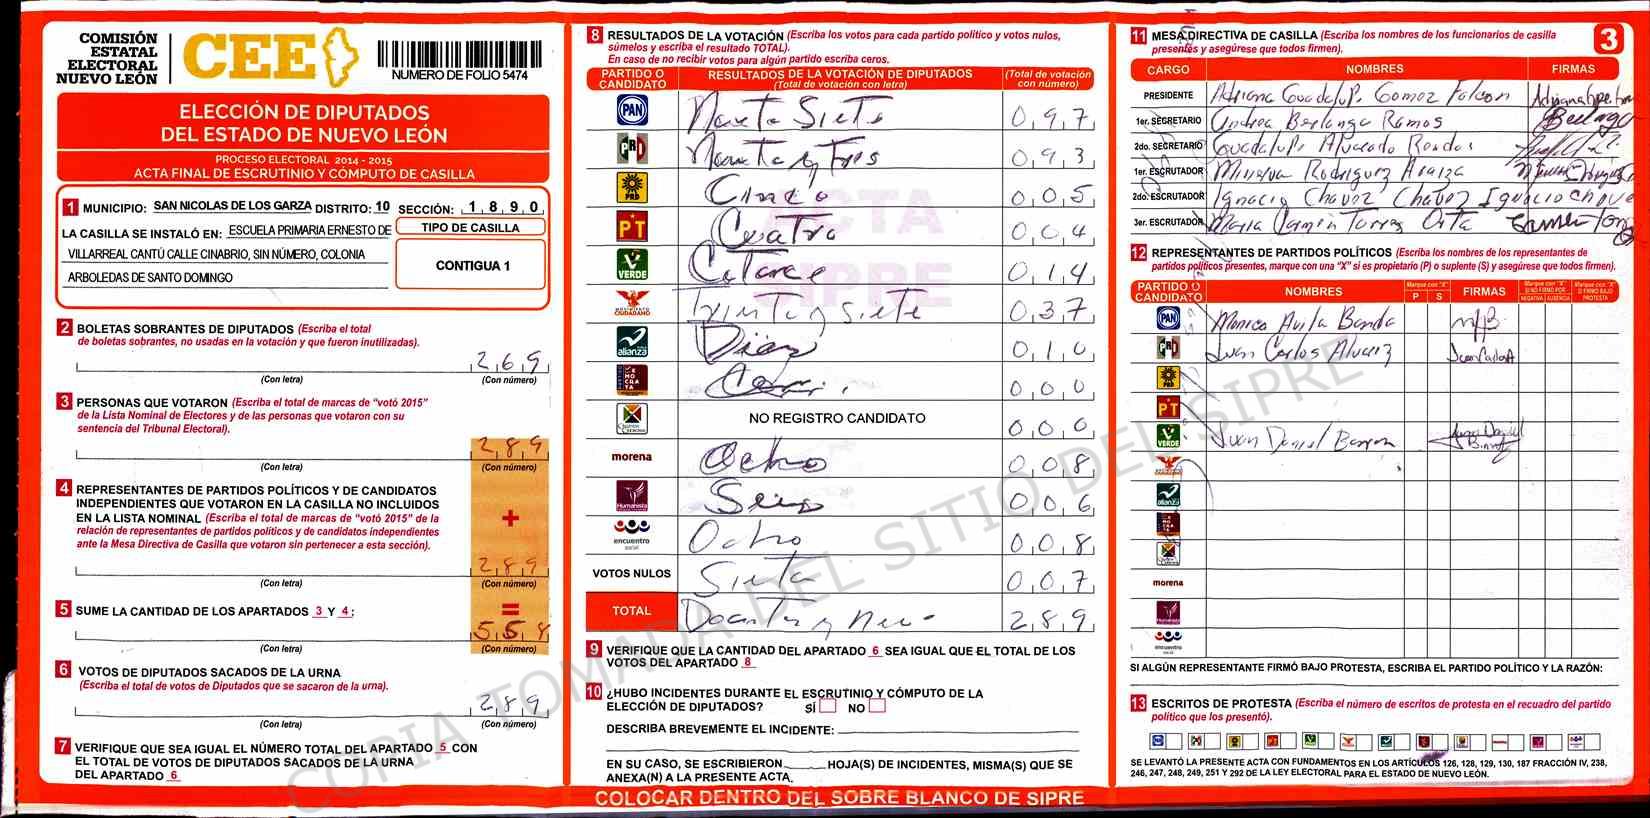 COMISIÓN
ESTATAL
ELECTORAL
NUEVO LEÓN
CEE
NUMERO DE FOLIO 5474
ELECCIÓN DE DIPUTADOS
DEL ESTADO DE NUEVO LEÓN
PROCESO ELECTORAL 2014 - 2015
ACTA FINAL DE ESCRUTINIO Y CÓMPUTO DE CASILLA
1 MUNICIPIO: SAN NICOLAS DE LOS GARZA DISTRITO: 10 SECCIÓN: 1 8 9 0
LA CASILLA SE INSTALÓ EN: ESCUELA PRIMARIA ERNESTO DE
VILLARREAL CANTÚ CALLE CINABRIO, SIN NÚMERO, COLONIA
ARBOLEDAS DE SANTO DOMINGO
TIPO DE CASILLA
CONTIGUA 1
2 BOLETAS SOBRANTES DE DIPUTADOS (Escriba el total
de boletas sobrantes, no usadas en la votación y que fueron inutilizadas).
2 6 9
(Con letra) (Con número)
3 PERSONAS QUE VOTARON (Escriba el total de marcas de “votó 2015”
de la Lista Nominal de Electores y de las personas que votaron con su
sentencia del Tribunal Electoral).
2 8 9
(Con letra) (Con número)
4 REPRESENTANTES DE PARTIDOS POLÍTICOS Y DE CANDIDATOS
INDEPENDIENTES QUE VOTARON EN LA CASILLA NO INCLUIDOS
EN LA LISTA NOMINAL (Escriba el total de marcas de “votó 2015” de la
relación de representantes de partidos políticos y de candidatos independientes
ante la Mesa Directiva de Casilla que votaron sin pertenecer a esta sección).
+
2 8 9
(Con letra) (Con número)
5 SUME LA CANTIDAD DE LOS APARTADOS 3 Y 4:
=
5 5 8
(Con letra) (Con número)
6 VOTOS DE DIPUTADOS SACADOS DE LA URNA
(Escriba el total de votos de Diputados que se sacaron de la urna).
2 8 9
(Con letra) (Con número)
7 VERIFIQUE QUE SEA IGUAL EL NÚMERO TOTAL DEL APARTADO 5 CON
EL TOTAL DE VOTOS DE DIPUTADOS SACADOS DE LA URNA
DEL APARTADO 6
8 RESULTADOS DE LA VOTACIÓN (Escriba los votos para cada partido político y votos nulos,
súmelos y escriba el resultado TOTAL).
En caso de no recibir votos para algún partido escriba ceros.
PARTIDO O CANDIDATO RESULTADOS DE LA VOTACIÓN DE DIPUTADOS (Total de votación con letra) (Total de votación con número)
PAN Noveta Siete 0 9 7
PRI Noveta y Tres 0 9 3
PRD Cinco 0 0 5
PT Cuatro 0 0 4
VERDE Catorce 0 1 4
MOVIMIENTO CIUDADANO treinta y siete 0 3 7
alianza Diez 0 1 0
0 0 0
NO REGISTRO CANDIDATO 0 0 0
morena Ocho 0 0 8
Humanista Seis 0 0 6
encuentro social Ocho 0 0 8
VOTOS NULOS Siete 0 0 7
TOTAL 2 8 9
ACTA
SIPRE
9 VERIFIQUE QUE LA CANTIDAD DEL APARTADO 6 SEA IGUAL QUE EL TOTAL DE LOS
VOTOS DEL APARTADO 8
10 ¿HUBO INCIDENTES DURANTE EL ESCRUTINIO Y CÓMPUTO DE LA
ELECCIÓN DE DIPUTADOS? SÍ NO
DESCRIBA BREVEMENTE EL INCIDENTE:
EN SU CASO, SE ESCRIBIERON HOJA(S) DE INCIDENTES, MISMA(S) QUE SE
ANEXA(N) A LA PRESENTE ACTA.
COLOCAR DENTRO DEL SOBRE BLANCO DE SIPRE
11 MESA DIRECTIVA DE CASILLA (Escriba los nombres de los funcionarios de casilla
presentes y asegúrese que todos firmen).
3
CARGO NOMBRES FIRMAS
PRESIDENTE Adriana Guadalupe Gomez Falcon
1er. SECRETARIO Andrea Berlanga Ramos Berlanga
2do. SECRETARIO Guadalupe Alvarado
1er. ESCRUTADOR Minerva Rodriguez Araiza
2do. ESCRUTADOR Ignacio Chavez Chavez Ignacio Chave
3er. ESCRUTADOR Maria Carmen Torres Orta
12 REPRESENTANTES DE PARTIDOS POLÍTICOS (Escriba los nombres de los representantes de
partidos políticos presentes, marque con una “X” si es propietario (P) o suplente (S) y asegúrese que todos firmen).
PARTIDO O CANDIDATO NOMBRES Marque con "X" P S FIRMAS Marque con "X" SI NO FIRMÓ POR NEGATIVA AUSENCIA Marque con "X" SI FIRMÓ BAJO PROTESTA
PAN Monica Avila Banda MAB
PRI Juan Carlos Alvarez
PRD
PT
VERDE Juan Daniel
alianza
morena
encuentro
SI ALGÚN REPRESENTANTE FIRMÓ BAJO PROTESTA, ESCRIBA EL PARTIDO POLÍTICO Y LA RAZÓN:
13 ESCRITOS DE PROTESTA (Escriba el número de escritos de protesta en el recuadro del partido
político que los presentó).
SE LEVANTÓ LA PRESENTE ACTA CON FUNDAMENTOS EN LOS ARTÍCULOS 126, 128, 129, 130, 187 FRACCIÓN IV, 238,
246, 247, 248, 249, 251 Y 292 DE LA LEY ELECTORAL PARA EL ESTADO DE NUEVO LEÓN.
COPIA TOMADA DEL SITIO DEL SIPRE